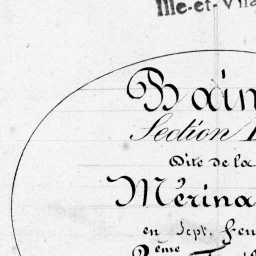 Ille-et-Vila
Bain
Section
Dite de la
Mérina
en Sept. Feu
2ème